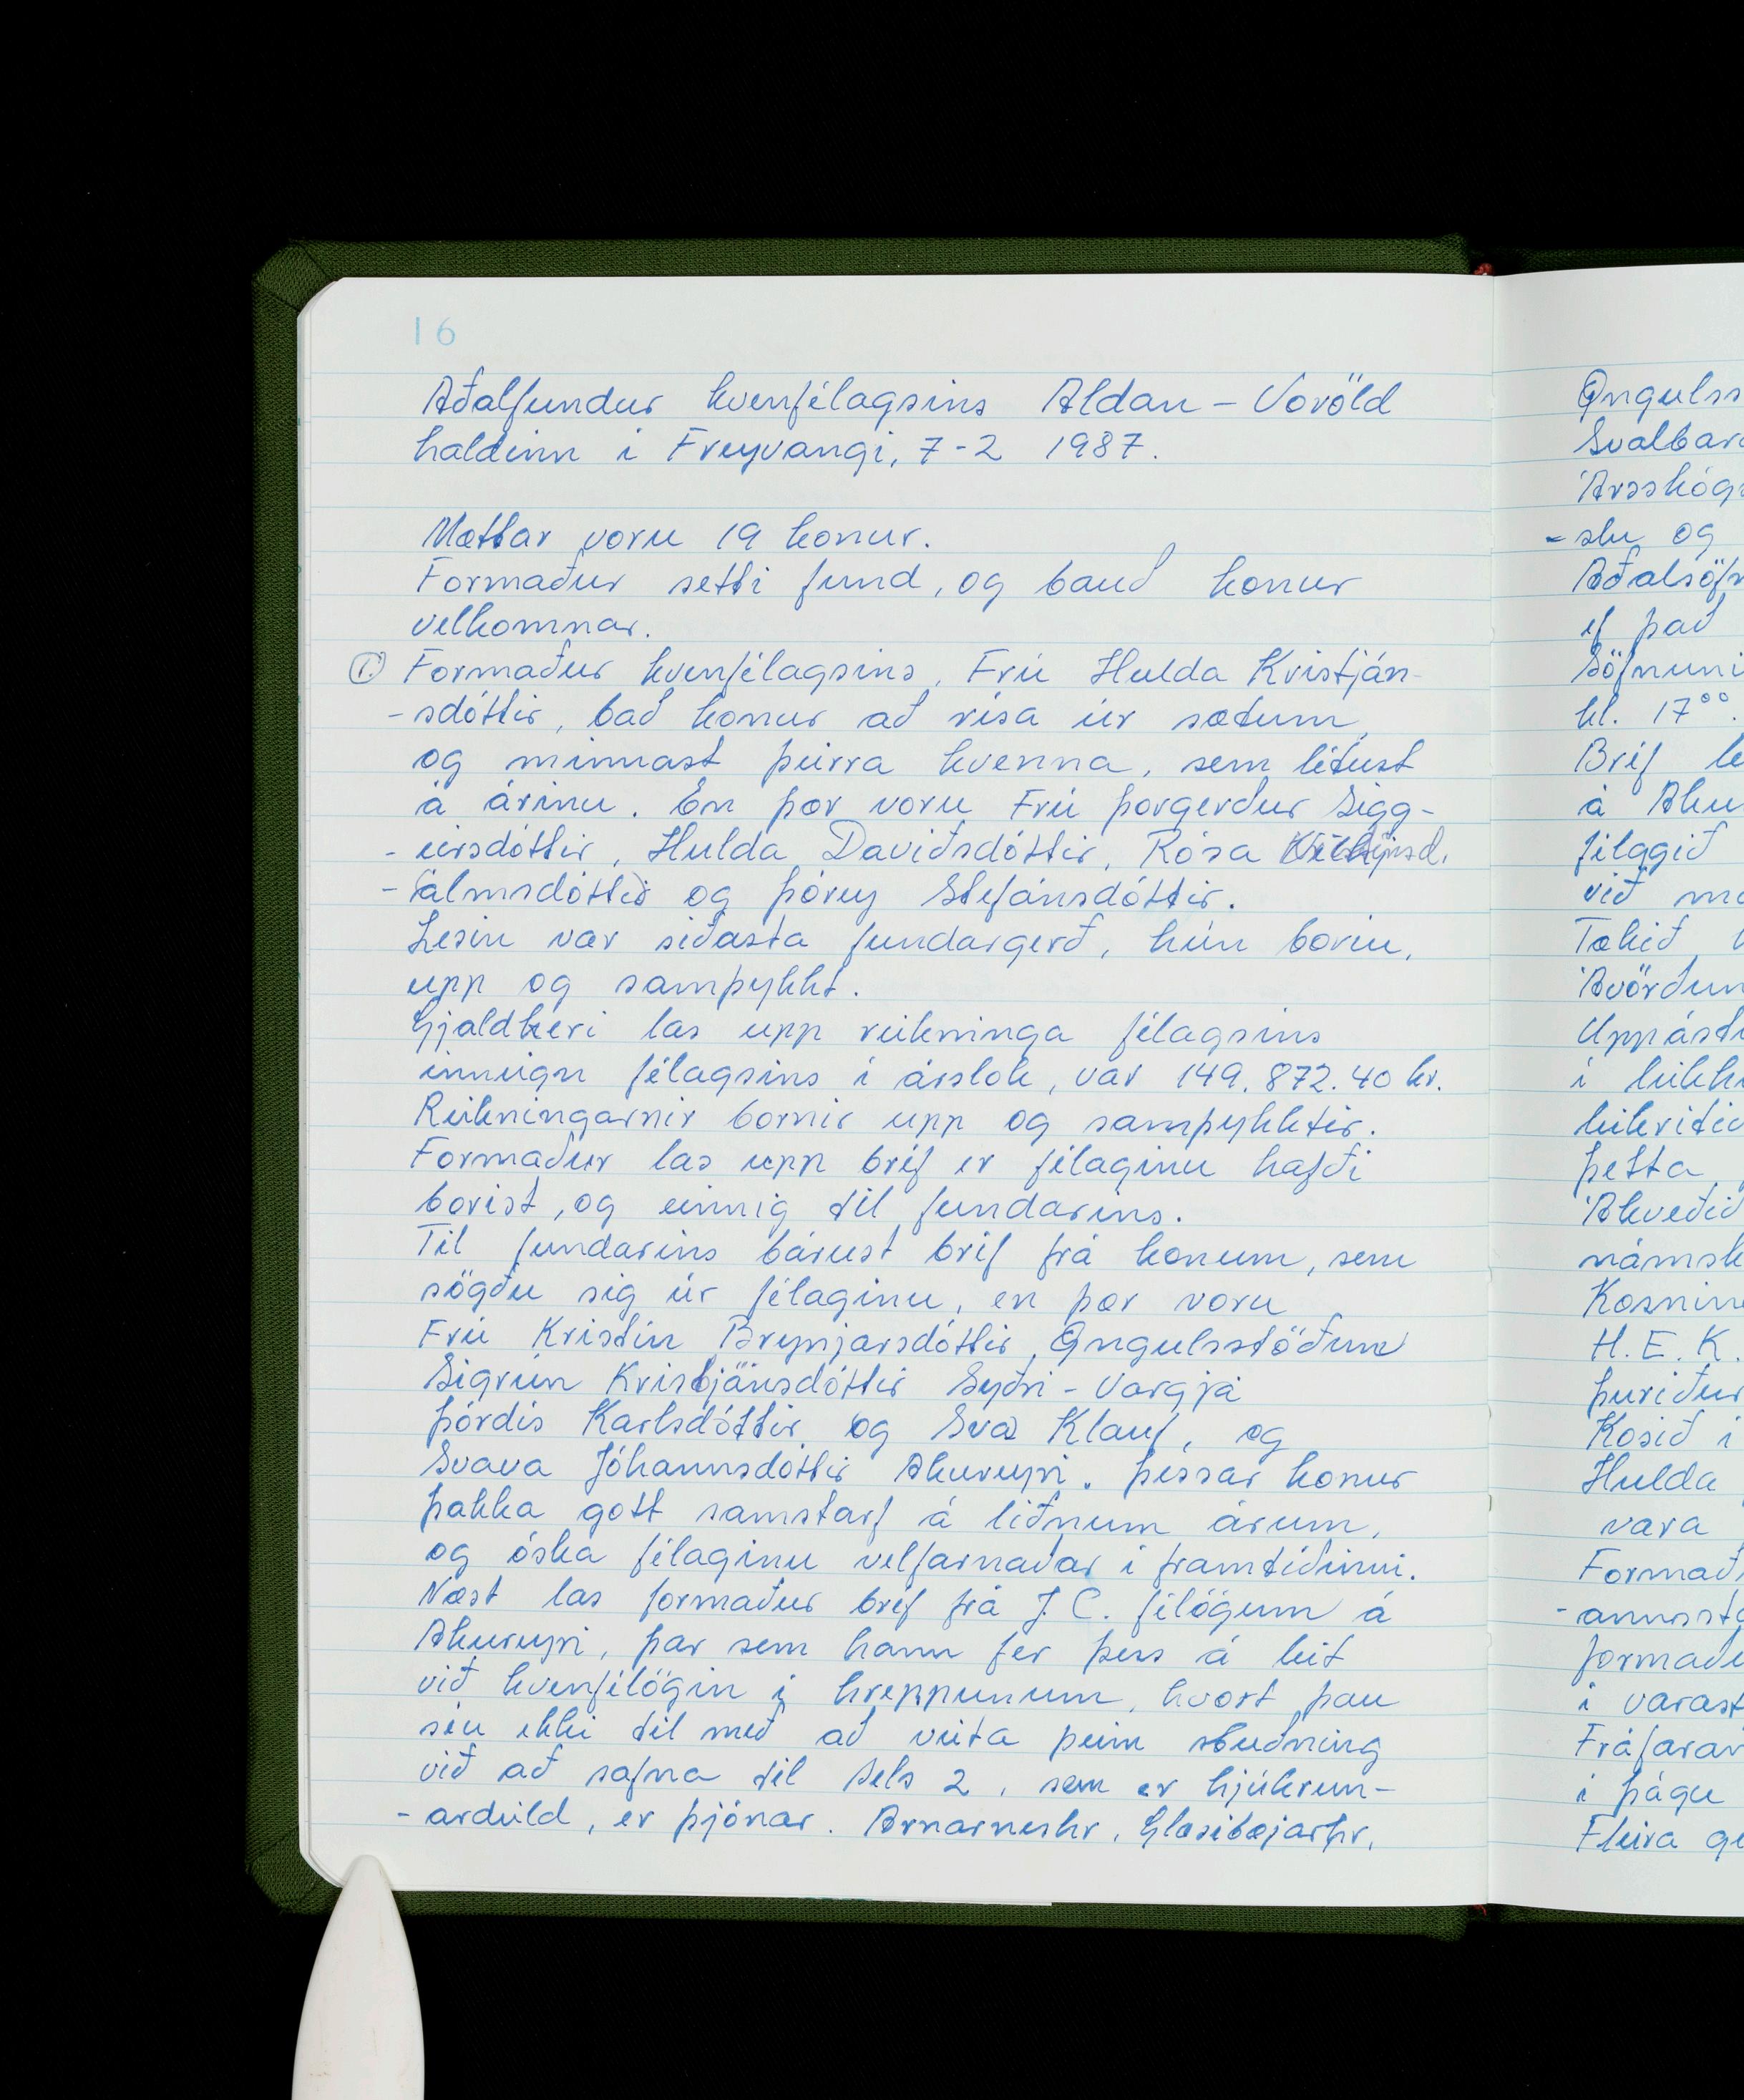 16
Aðalfundur kvenfélagsins Aldan - Voröld
haldinn í Freyvangi, 7-2 1987.
Mættar voru 19 konur.
Formaður setti fund, og bauð konur
velkomnar.
1. Formaður kvenfélagsins, Frú Hulda Kristján-
-sdóttir, bað konur að rísa úr sætum,
og minnast þeirra kvenna, sem létust
á árinu. En þær voru Frú Þorgerður Sigg-
-eirsdóttir, Hulda Davíðsdóttir, Rósa
-jálmsdóttir og Þórey Stefánsdóttir.
Lesin var síðasta fundargerð, hún borin,
upp og samþykkt.
Gjaldkeri las upp reikninga félagsins
inneign félagsins í árslok, var 149.872.40 kr.
Reikningarnir bornir upp og samþykktir.
Formaður las upp bréf er félaginu hafði
borist, og einnig til fundarins.
Til fundarins bárust bréf frá konum, sem
sögðu sig úr félaginu, en þær voru
Frú Kristín Brynjarsdóttir, Öngulsstöðum
Sigrún Kristjánsdóttir Syðri-Vargjá
Þórdís Karlsdóttir og Sva Klauf, og
Svava Jóhannsdóttir Akureyri. Þessar konur
þakka gott samstarf á liðnum árum,
og óska félaginu velfarnaðar í framtíðinni.
Næst las formaður bréf frá J.C. félögum á
Akureyri, þar sem hann fer þess á leit
við kvenfélögin í hreppunum, hvort þau
séu ekki til með að veita þeim stuðning
við að safna til Sels 2, sem er hjúkrun-
-ardeild, er þjónar. Arnarneshr, Glæsibæjarhr,
Öngulss
Svalbar
Árskóg
-slu og
Aðalsöf
ef það
Söfnuni
kl. 17⁰⁰.
Bréf
á Aku
félagið
við
Tekið
Ávörðun
Uppást
í leikh
leikritið
þetta
Ákveðið
námsk
Kosnin
H.E.K.
Þuríður
Kosið í
Hulda
vara
Formað
-annsst
formaðu
í varast
Fráfaran
í þágu
Fleira ge